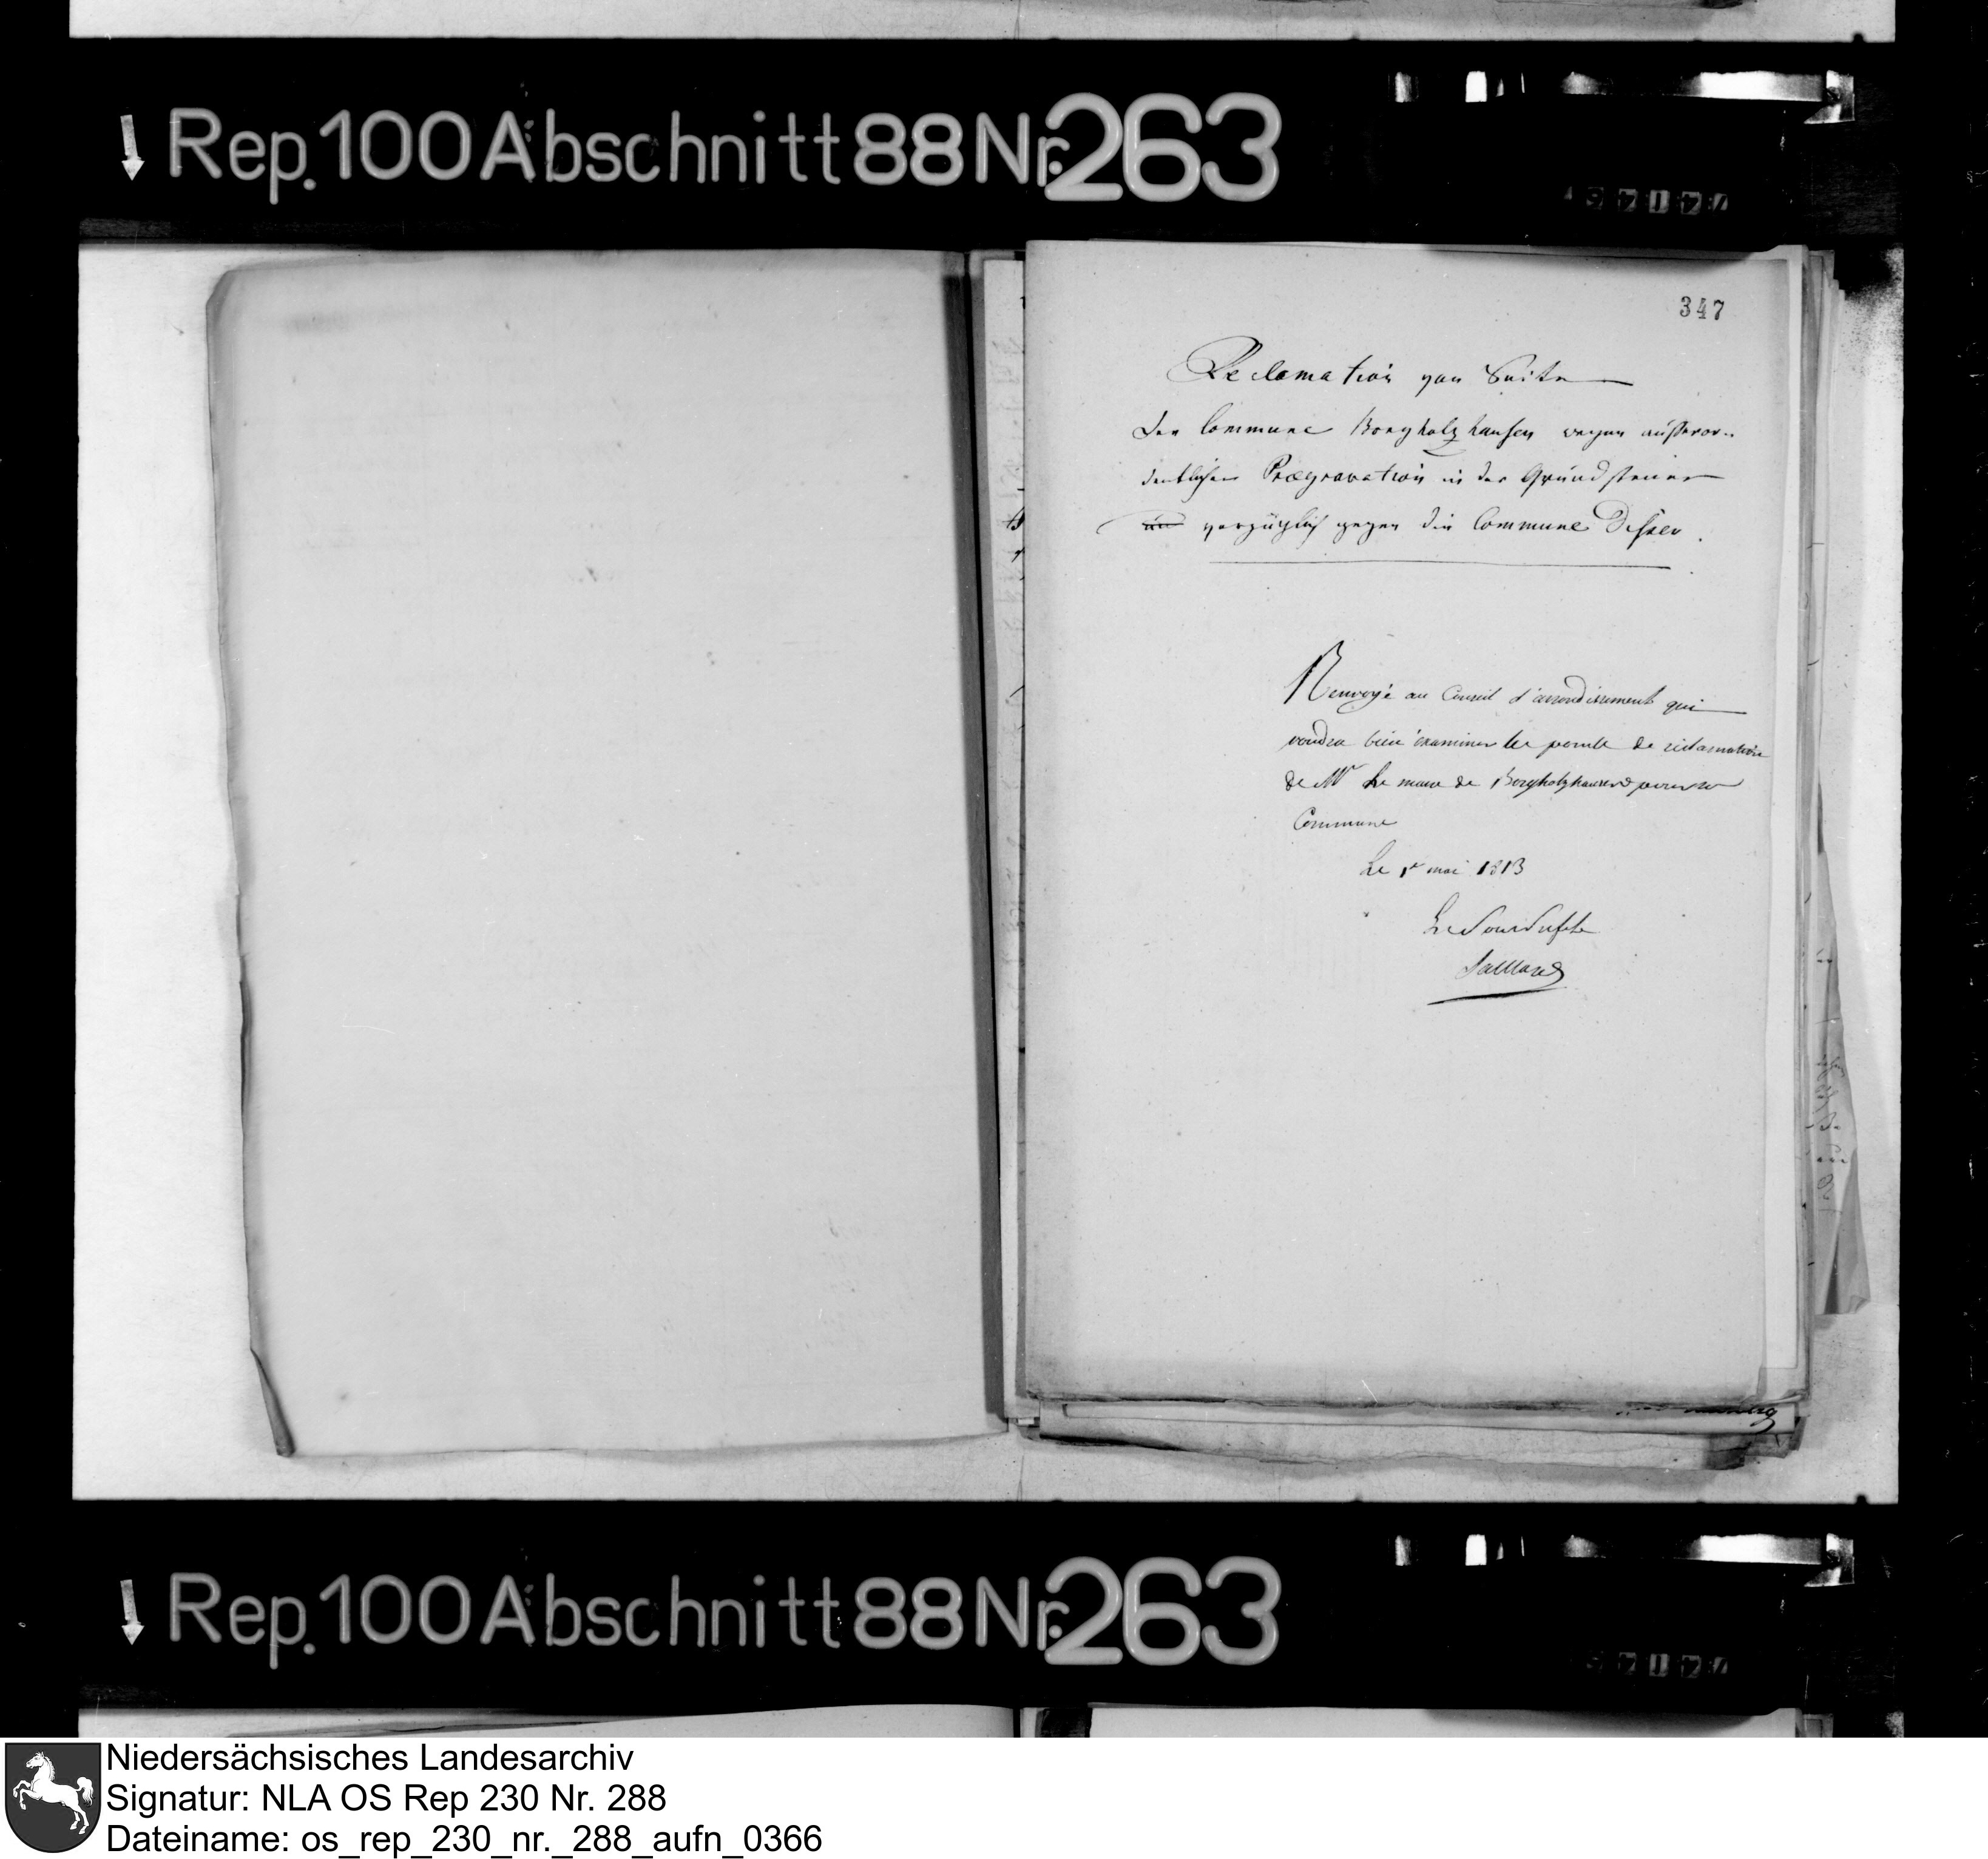 Rep. 100 Abschnitt 88 Nr. 263
347
Reclamation von Seiten
der Commune Borgholzhausen wegen ausseror-
dentlicher Praegravation in der Grundsteuer
vorzüglich gegen die Commune Dissen.
Renvoyé au Conseil d'arrondissement qui
voudra bien éxaminer les points de réclamation
de Mr Le maire de Borgholzhausen pour sa
Commune
Le 1r mai 1813
Le Sous Préfet
Rep. 100 Abschnitt 88 Nr. 263
Niedersächsisches Landesarchiv
Signatur: NLA OS Rep 230 Nr. 288
Dateiname: os_rep_230_nr._288_aufn_0366